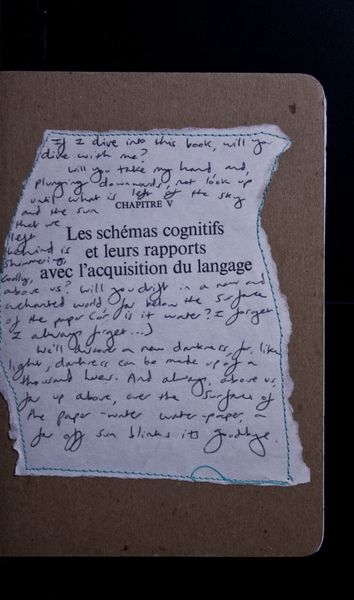 If I dive into this book, will you
dive with me?
Will you take my hand and,
plunging downwards, not look up
until what is left of the sky
and the sun
CHAPITRE V
that we
left
Les schémas cognitifs
et leurs rapports
avec l'acquisition du langage
behind is
shimmering,
coolly,
above us? Will you drift in a new and
enchanted world far below the surface
of the paper (or is it water? I forget
I always forget...)
We'll discover a new darkness, for, like
light, darkness can be made up of a
thousand hues. And always, above us,
far up above, over the surface of
the paper-water water-paper, a
far off sun blinks its goodbye.